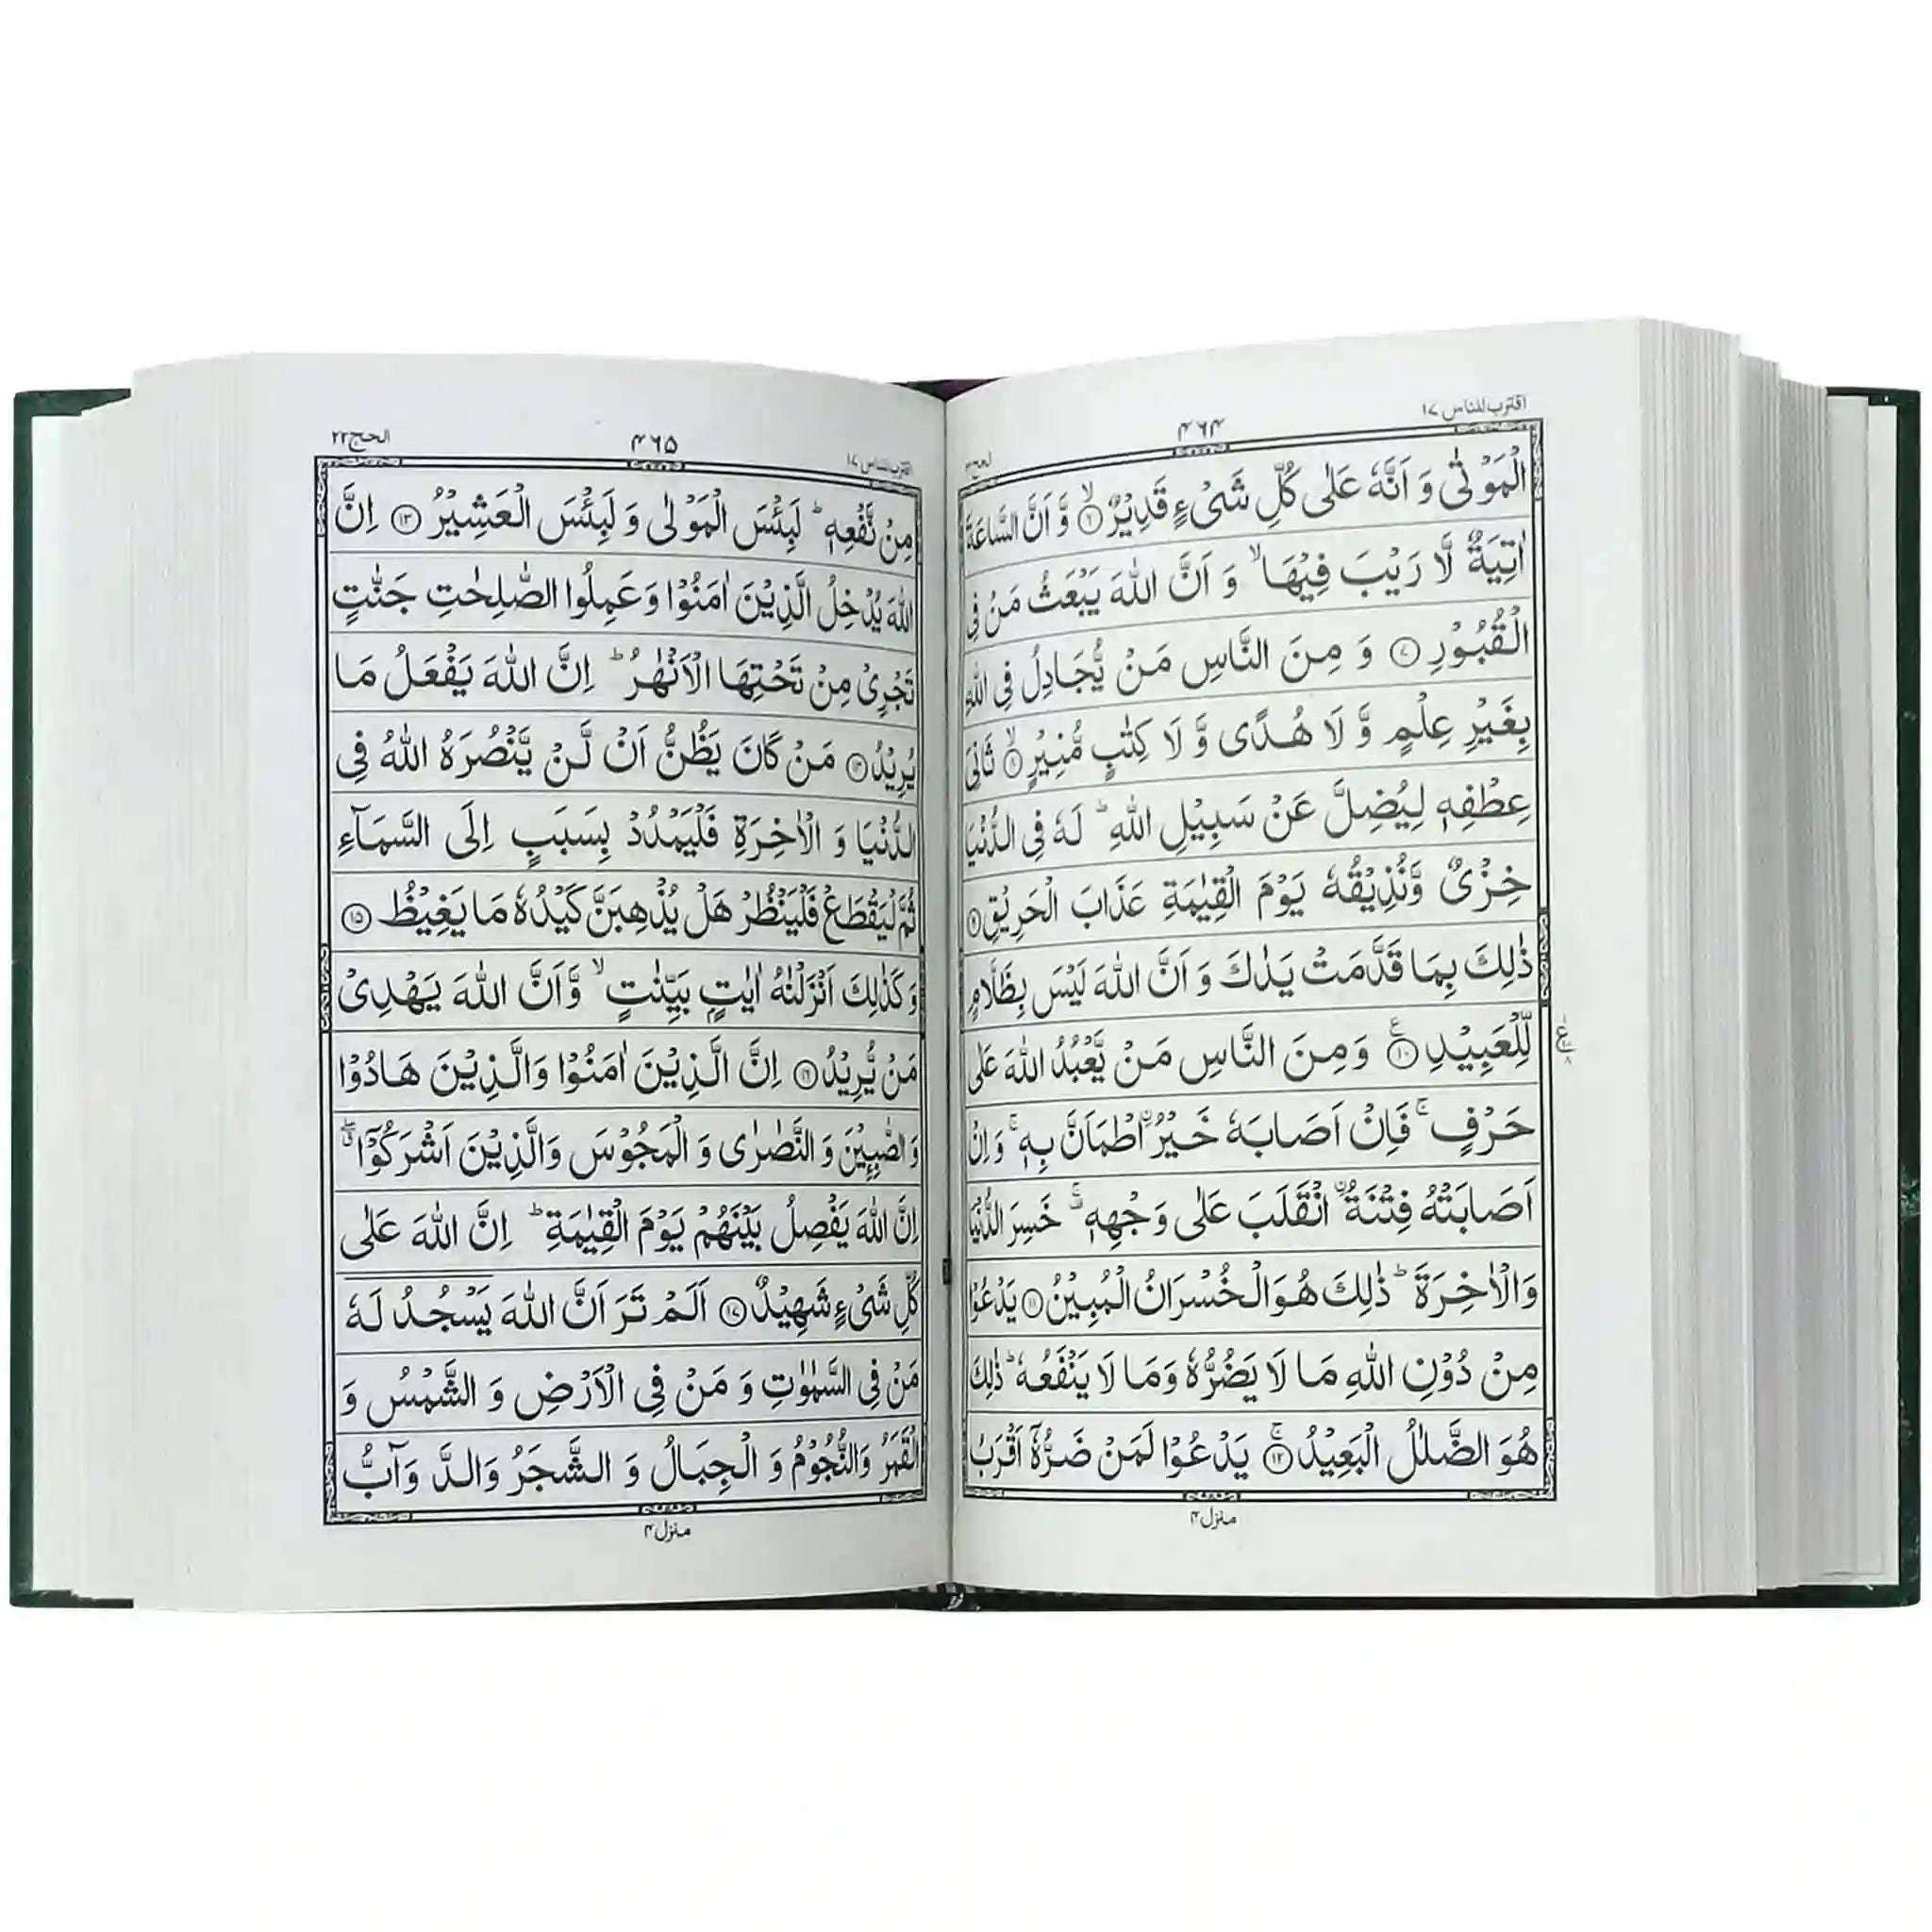 اقترب للناس ١٧
۴۶۴
الْمَوْتٰى وَ اَنَّهٗ عَلٰى كُلِّ شَىْءٍ قَدِيْرٌ ۙ﴿۶﴾ وَّ اَنَّ السَّاعَةَ
اٰتِيَةٌ لَّا رَيْبَ فِيْهَا ۙ وَ اَنَّ اللّٰهَ يَبْعَثُ مَنْ فِى
الْقُبُوْرِ ﴿۷﴾ وَ مِنَ النَّاسِ مَنْ يُّجَادِلُ فِى اللّٰهِ
بِغَيْرِ عِلْمٍ وَّ لَا هُدًى وَّ لَا كِتٰبٍ مُّنِيْرٍ ۙ﴿۸﴾ ثَانِىَ
عِطْفِهٖ لِيُضِلَّ عَنْ سَبِيْلِ اللّٰهِ ؕ لَهٗ فِى الدُّنْيَا
خِزْىٌ وَّنُذِيْقُهٗ يَوْمَ الْقِيٰمَةِ عَذَابَ الْحَرِيْقِ ﴿۹﴾
ذٰلِكَ بِمَا قَدَّمَتْ يَدٰكَ وَ اَنَّ اللّٰهَ لَيْسَ بِظَلَّامٍ
لِّلْعَبِيْدِ ﴿۱۰﴾ وَمِنَ النَّاسِ مَنْ يَّعْبُدُ اللّٰهَ عَلٰى
حَرْفٍ ۚ فَاِنْ اَصَابَهٗ خَيْرُ ۨاطْمَاَنَّ بِهٖ ۚ وَاِنْ
اَصَابَتْهُ فِتْنَةُ ۨانْقَلَبَ عَلٰى وَجْهِهٖ ۚ خَسِرَ الدُّنْيَا
وَالْاٰخِرَةَ ؕ ذٰلِكَ هُوَالْخُسْرَانُ الْمُبِيْنُ ﴿۱۱﴾ يَدْعُوْا
مِنْ دُوْنِ اللّٰهِ مَا لَا يَضُرُّهٗ وَمَا لَا يَنْفَعُهٗ ؕ ذٰلِكَ
هُوَ الضَّلٰلُ الْبَعِيْدُ ۚ﴿۱۲﴾ يَدْعُوْا لَمَنْ ضَرُّهٗۤ اَقْرَبُ
منزل ۴
اقترب للناس ١٧
۴۶۵
الحج ۲۲
مِنْ نَّفْعِهٖ ؕ لَبِئْسَ الْمَوْلٰى وَ لَبِئْسَ الْعَشِيْرُ ﴿۱۳﴾ اِنَّ
اللّٰهَ يُدْخِلُ الَّذِيْنَ اٰمَنُوْا وَعَمِلُوا الصّٰلِحٰتِ جَنّٰتٍ
تَجْرِىْ مِنْ تَحْتِهَا الْاَنْهٰرُ ؕ اِنَّ اللّٰهَ يَفْعَلُ مَا
يُرِيْدُ ﴿۱۴﴾ مَنْ كَانَ يَظُنُّ اَنْ لَّنْ يَّنْصُرَهُ اللّٰهُ فِى
الدُّنْيَا وَ الْاٰخِرَةِ فَلْيَمْدُدْ بِسَبَبٍ اِلَى السَّمَآءِ
ثُمَّ لْيَقْطَعْ فَلْيَنْظُرْ هَلْ يُذْهِبَنَّ كَيْدُهٗ مَا يَغِيْظُ ﴿۱۵﴾
وَكَذٰلِكَ اَنْزَلْنٰهُ اٰيٰتٍۭ بَيِّنٰتٍ ۙ وَّاَنَّ اللّٰهَ يَهْدِىْ
مَنْ يُّرِيْدُ ﴿۱۶﴾ اِنَّ الَّذِيْنَ اٰمَنُوْا وَالَّذِيْنَ هَادُوْا
وَالصّٰبِــِٕيْنَ وَ النَّصٰرٰى وَ الْمَجُوْسَ وَالَّذِيْنَ اَشْرَكُوْۤا ۖ
اِنَّ اللّٰهَ يَفْصِلُ بَيْنَهُمْ يَوْمَ الْقِيٰمَةِ ؕ اِنَّ اللّٰهَ عَلٰى
كُلِّ شَىْءٍ شَهِيْدٌ ﴿۱۷﴾ اَلَمْ تَرَ اَنَّ اللّٰهَ يَسْجُدُ لَهٗ
مَنْ فِى السَّمٰوٰتِ وَ مَنْ فِى الْاَرْضِ وَ الشَّمْسُ وَ
الْقَمَرُ وَالنُّجُوْمُ وَ الْجِبَالُ وَ الشَّجَرُ وَالدَّ وَآبُّ
منزل ۴